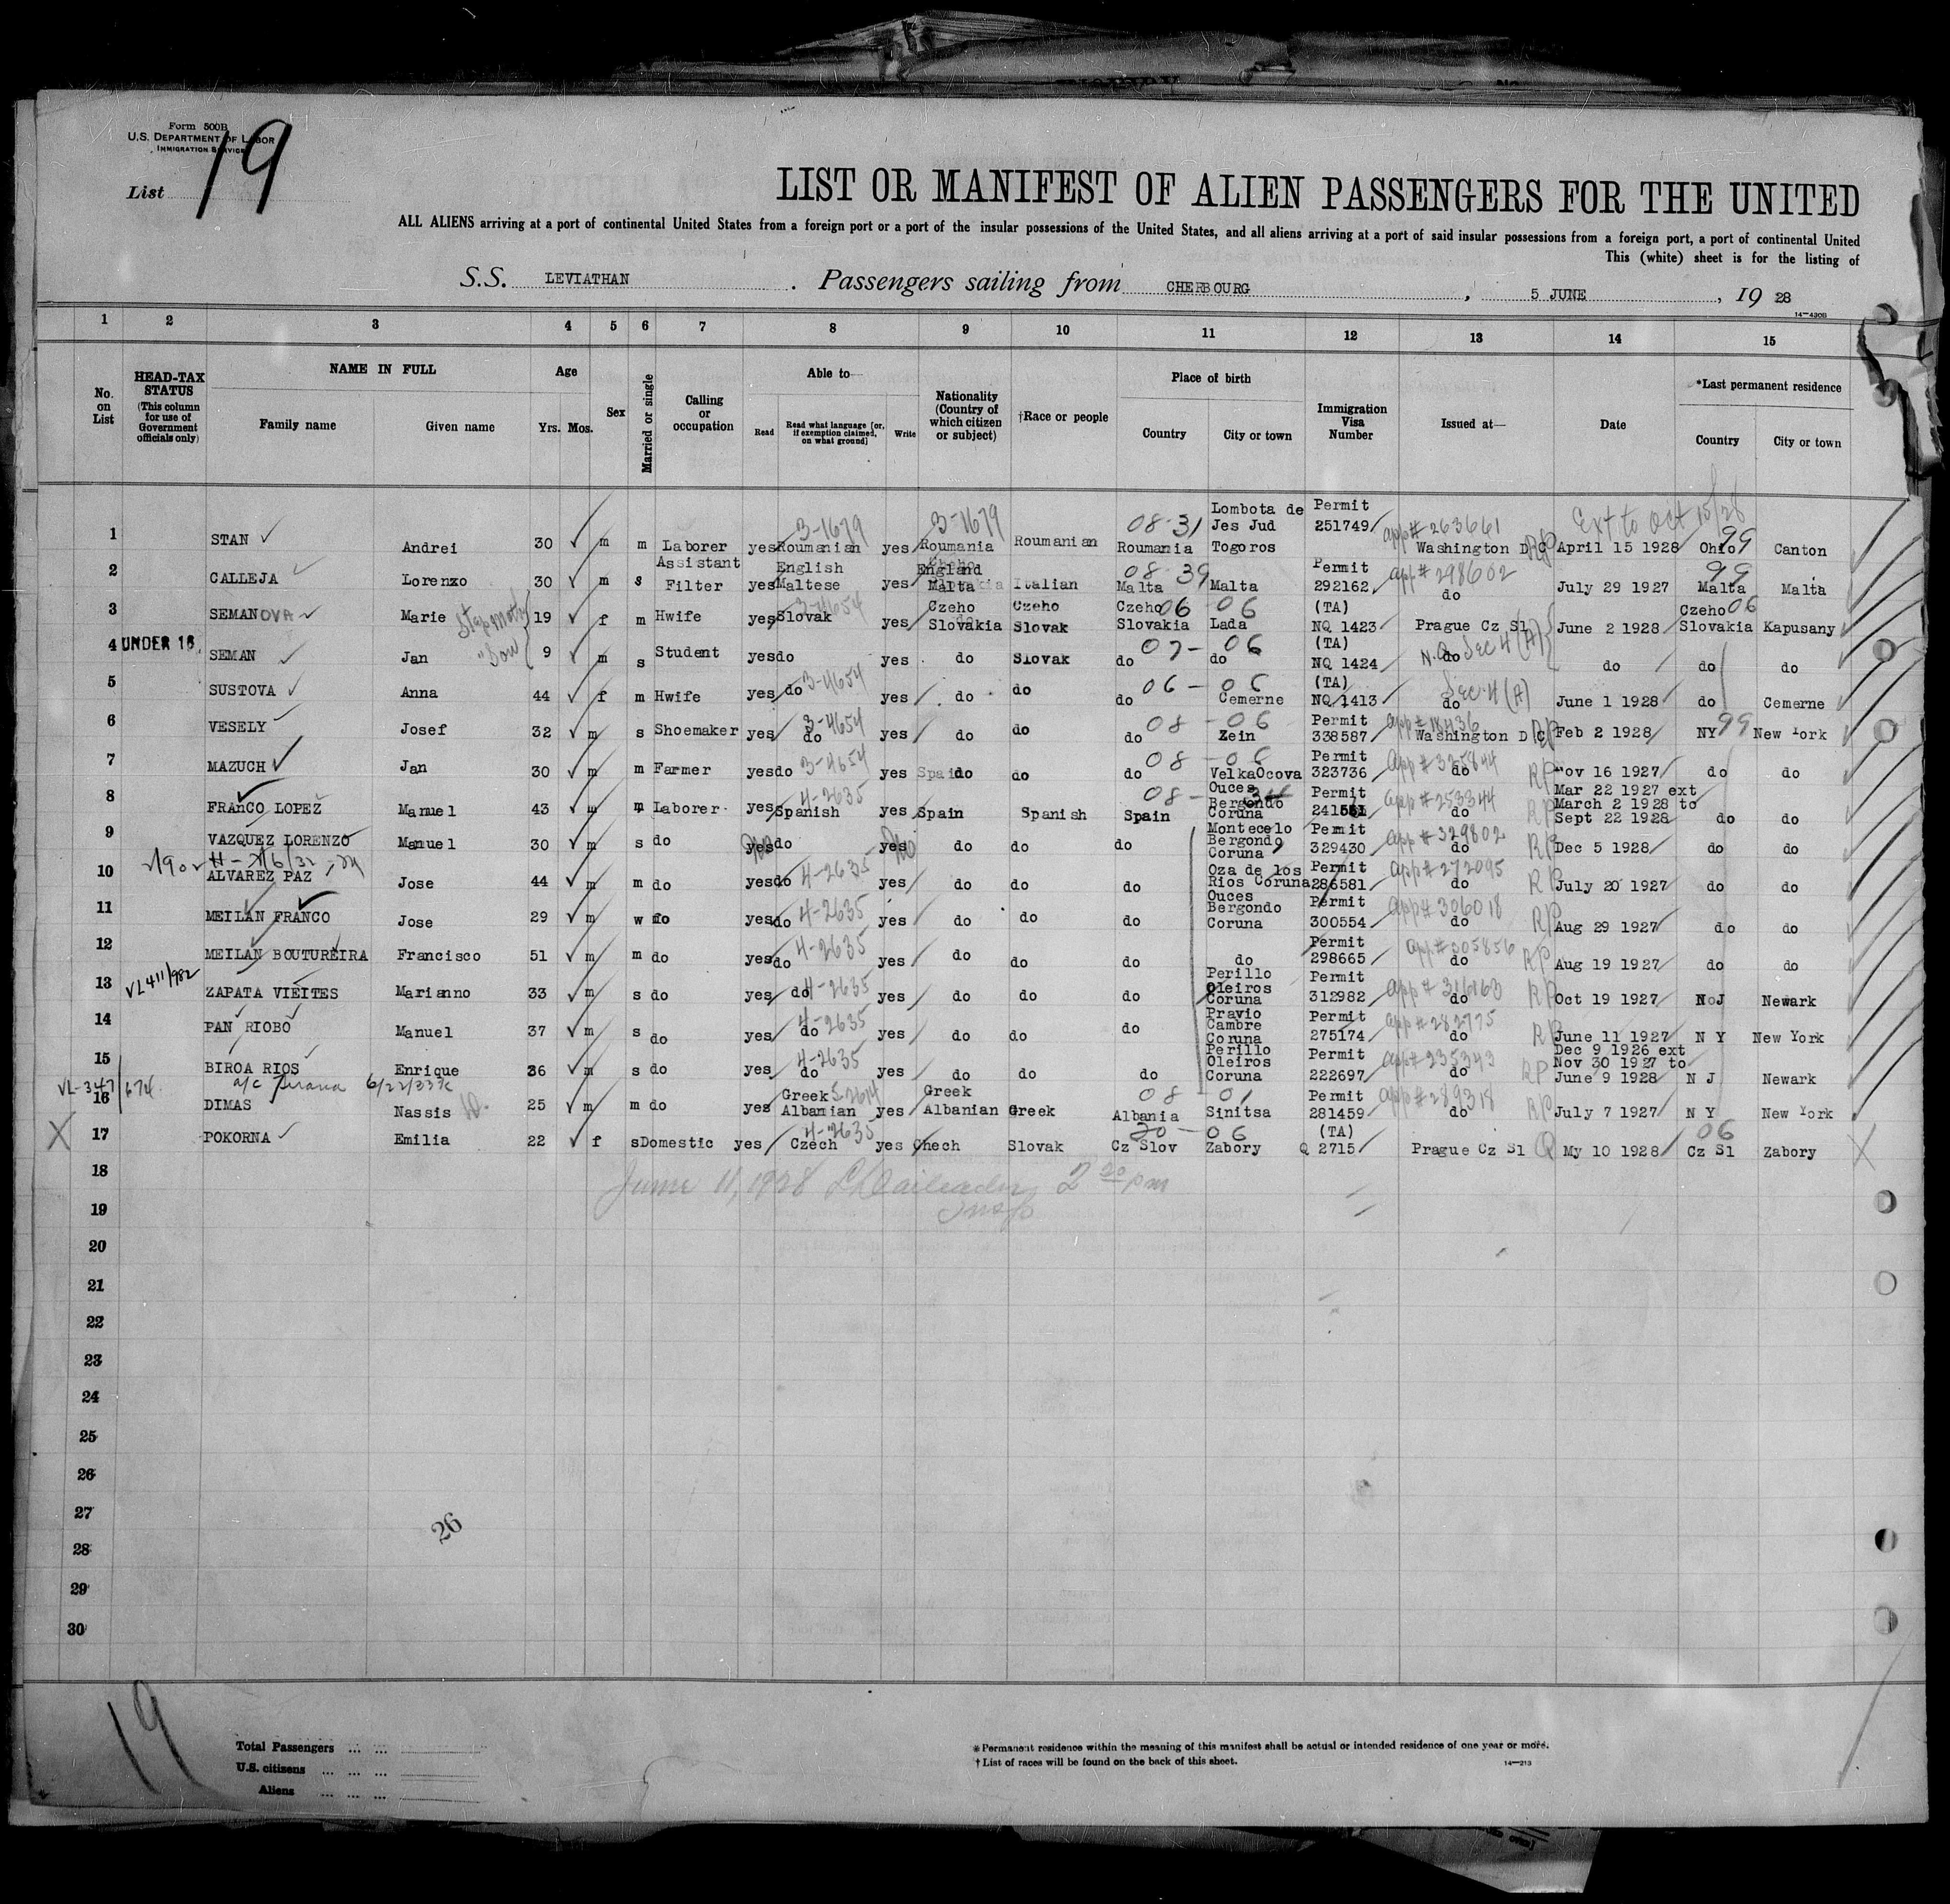 Form 500B
U.S. DEPARTMENT OF LABOR
IMMIGRATION SERVICE
List 19
LIST OR MANIFEST OF ALIEN PASSENGERS FOR THE UNITED
ALL ALIENS arriving at a port of continental United States from a foreign port or a port of the insular possessions of the United States, and all aliens arriving at a port of said insular possessions from a foreign port, a port of continental United
This (white) sheet is for the listing of
S.S. LEVIATHAN . Passengers sailing from CHERBOURG , 5 JUNE , 19 28
14-430B
1 2 3 4 5 6 7 8 9 10 11 12 13 14 15
No. on List
HEAD-TAX STATUS (This column for use of Government officials only)
NAME IN FULL Family name Given name
Age Yrs. Mos.
Sex
Married or single
Calling or occupation
Able to— Read Read what language [or, if exemption claimed, on what ground] Write
Nationality (Country of which citizen or subject)
†Race or people
Place of birth Country City or town
Immigration Visa Number
Issued at—
Date
*Last permanent residence Country City or town
1 STAN Andrei 30 m m Laborer yes Roumanian 3-1679 yes Roumania 3-1679 Roumanian Roumania 08-31 Lombota de Jes Jud Togoros Permit 251749 app# 263661 Washington D C April 15 1928 Ext to Oct 15/28 Ohio 99 Canton
2 CALLEJA Lorenzo 30 m s Assistant Filter yes English Maltese yes England Malta Italian Malta 08 39 Malta Permit 292162 app# 298602 do July 29 1927 Malta 99 Malta
3 SEMANOVA Marie Stepmoth 19 f m Hwife yes Slovak 3-4654 yes Czeho Slovakia Czeho Slovak Czeho Slovakia 06-06 Lada (TA) NQ 1423 Prague Cz Sl June 2 1928 Czeho Slovakia 06 Kapusany
4 UNDER 16 SEMAN Jan "Son 9 m s Student yes do yes do Slovak do 07-06 do (TA) NQ 1424 do N.Q. Sec 4 (A) do do do
5 SUSTOVA Anna 44 f m Hwife yes do 3-4654 yes do do do 06-06 Cemerne (TA) NQ 1413 do Sec. 4 (A) June 1 1928 do Cemerne
6 VESELY Josef 32 m s Shoemaker yes do 3-4654 yes do do do 08-06 Zein Permit 338587 Washington D C Feb 2 1928 NY 99 New York
7 MAZUCH Jan 30 m m Farmer yes do 3-4654 yes do do do 08-06 VelkaOcova Permit 323736 app# 325844 do RP Nov 16 1927 do do
8 FRANCO LOPEZ Manuel 43 m m Laborer yes Spanish 4-2635 yes Spain Spanish Spain 08-34 Ouces Bergondo Coruna Permit app# 253344 do RP Mar 22 1927 ext March 2 1928 to Sept 22 1928 do do
9 VAZQUEZ LORENZO Manuel 30 m s do yes No do yes No do do do Montecelo Bergondo Coruna Permit 329430 app# 329802 do RP Dec 5 1928 do do
10 ALVAREZ PAZ Jose 44 m m do yes do 4-2635 yes do do do Oza de los Rios Coruna Permit 286581 app# 272095 do RP July 20 1927 do do
11 MEILAN FRANCO Jose 29 m w do yes do 4-2635 yes do do do Ouces Bergondo Coruna Permit 300554 app# 306018 do RP Aug 29 1927 do do
12 MEILAN BOUTUREIRA Francisco 51 m m do yes do 4-2635 yes do do do do Permit 298665 app# 305856 do RP Aug 19 1927 do do
13 VL411/982 ZAPATA VIEITES Marianno 33 m s do yes do 4-2635 yes do do do Perillo Oleiros Coruna Permit 312982 app# 316163 do RP Oct 19 1927 N J Newark
14 PAN RIOBO Manuel 37 m s do yes do 4-2635 yes do do do Pravio Cambre Coruna Permit 275174 app# 282775 do RP June 11 1927 N Y New York
15 BIROA RIOS Enrique 36 m s do yes do 4-2635 yes do do do Perillo Oleiros Coruna Permit 222697 app# 235343 do RP Dec 9 1926 ext Nov 30 1927 to June 9 1928 N J Newark
VL-347/674 6/22/33
16 DIMAS Nassis 25 m m do yes Greek Albanian yes Greek Albanian Greek Albania 08-01 Sinitsa Permit 281459 app# 289318 do RP July 7 1927 N Y New York
X 17 POKORNA Emilia 22 f s Domestic yes Czech 4-2635 yes Chech Slovak Cz Slov 20-06 Zabory (TA) Q 2715 Prague Cz Sl Q My 10 1928 Cz Sl 06 Zabory X
18 June 11, 1928 2 00 pm
19 Insp
20
21
22
23
24
25
26
27
26
28
29
30
19
Total Passengers ... ...
U.S. citizens ... ... ...
Aliens ... ... ...
*Permanent residence within the meaning of this manifest shall be actual or intended residence of one year or more.
†List of races will be found on the back of this sheet.
14-213